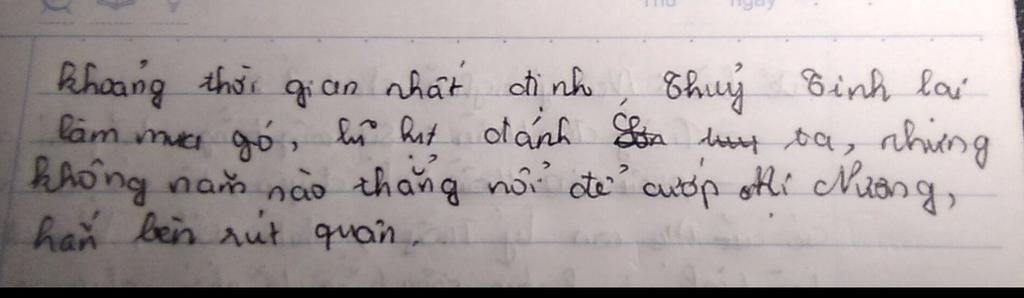 Thứ ngày
Khoảng thời gian nhất định, Thuỷ Tinh lại
làm mưa gó, lũ lụt đánh ta, nhưng
không năm nào thắng nổi để cướp Mị Nương,
hắn bèn rút quân.